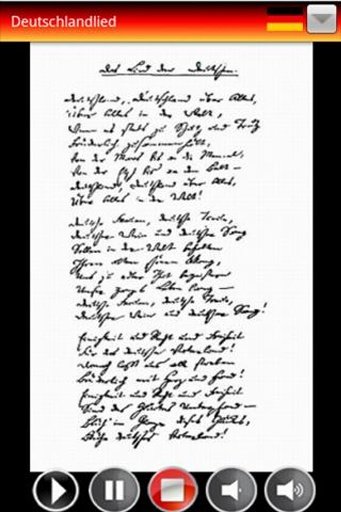 Deutschlandlied
Das Lied der Deutschen.
Deutschland, Deutschland über Alles,
Über Alles in der Welt,
Wenn es stets zu Schutz und Trutz
Brüderlich zusammenhält,
Von der Maas bis an die Memel,
Von der Etsch bis an den Belt –
Deutschland, Deutschland über Alles,
Über Alles in der Welt!
Deutsche Frauen, deutsche Treue,
Deutscher Wein und deutscher Sang
Sollen in der Welt behalten
Ihren alten schönen Klang,
Uns zu edler That begeistern
Unser ganzes Leben lang –
Deutsche Frauen, deutsche Treue,
Deutscher Wein und deutscher Sang!
Einigkeit und Recht und Freiheit
Für das deutsche Vaterland!
Danach lasst uns alle streben
Brüderlich mit Herz und Hand!
Einigkeit und Recht und Freiheit
Sind des Glückes Unterpfand –
Blüh im Glanze dieses Glückes,
Blühe deutsches Vaterland!